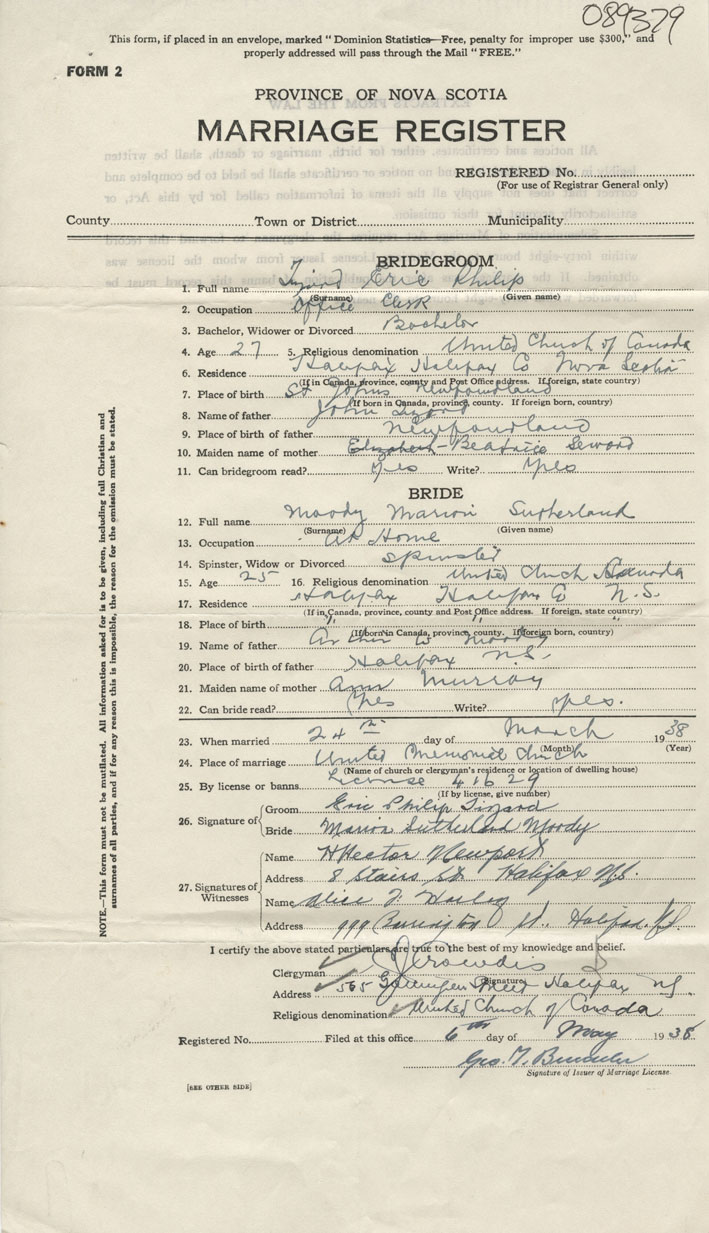 089379
This form, if placed in an envelope, marked "Dominion Statistics—Free, penalty for improper use $300," and
properly addressed will pass through the Mail "FREE."
FORM 2
PROVINCE OF NOVA SCOTIA
MARRIAGE REGISTER
REGISTERED No.
(For use of Registrar General only)
County Town or District Municipality
BRIDEGROOM
1. Full name Tizzard Eric Philip
(Surname) (Given name)
2. Occupation Office Clerk
3. Bachelor, Widower or Divorced Bachelor
4. Age 27 5. Religious denomination United Church of Canada
6. Residence Halifax Halifax Co Nova Scotia
(If in Canada, province, county and Post Office address. If foreign, state country)
7. Place of birth St Johns Newfoundland
(If born in Canada, province, county. If foreign born, country)
8. Name of father John
9. Place of father Newfoundland
10. Maiden name of mother Elizabeth-Beatrice Seward
11. Can bridegroom read? Yes Write? Yes
BRIDE
12. Full name Moody Marion Sutherland
(Surname) (Given name)
13. Occupation At Home
14. Spinster, Widow or Divorced Spinster
15. Age 25 16. Religious denomination United Church Canada
17. Residence Halifax Halifax Co N.S.
(If in Canada, province, county and Post Office address. If foreign, state country)
18. Place of birth " " "
(If born in Canada, province, county. If foreign born, country)
19. Name of father Moody
20. Place of birth of father Halifax N.S.
21. Maiden name of mother Ann Murray
22. Can bride read? Yes Write? Yes.
23. When married 24th day of March 1938
(Month) (Year)
24. Place of marriage United Memorial Church
(Name of church or clergyman's residence or location of dwelling house)
25. By license or banns License 41629
(If by license, give number)
26. Signature of Groom Eric Philip Tizzard
Bride Marion Sutherland Moody
27. Signatures of Witnesses Name H Hector Newport
Address 8 Stairs St Halifax N.S.
Name Alice
Address 999 Barrington St., Halifax, N.S.
I certify the above stated particulars are true to the best of my knowledge and belief.
Clergyman Crowdis
(Signature)
Address 565 Gottingen Street Halifax NS
Religious denomination United Church of Canada
Registered No. Filed at this office 6th day of May 1938
Geo. T.
Signature of Issuer of Marriage License.
[SEE OTHER SIDE]
NOTE.—This form must not be mutilated. All information asked for is to be given, including full Christian and
surnames of all parties, and if for any reason this is impossible, the reason for the omission must be stated.